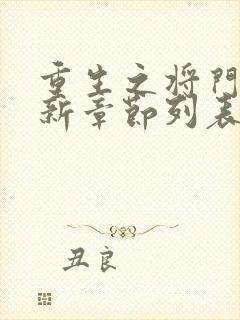 重生之将门
新章节列表
丑良